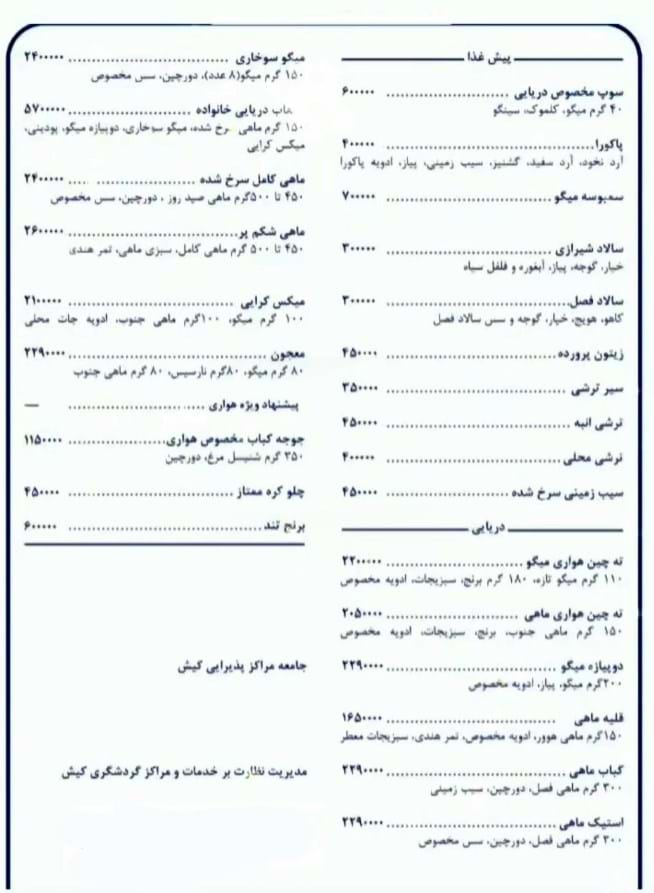 پیش غذا
سوپ مخصوص دریایی ........................ ۶۰۰۰۰۰
۴۰ گرم میگو، کلموک، سینگو
پاکورا ........................ ۴۰۰۰۰۰
آرد نخود، آرد سفید، گشنیز، سیب زمینی، پیاز، ادویه پاکورا
سمبوسه میگو ........................ ۷۰۰۰۰۰
سالاد شیرازی ........................ ۳۰۰۰۰۰
خیار، گوجه، پیاز، آبغوره و فلفل سیاه
سالاد فصل ........................ ۳۰۰۰۰۰
کاهو، هویج، خیار، گوجه و سس سالاد فصل
زیتون پرورده ........................ ۴۵۰۰۰۰
سیر ترشی ........................ ۳۵۰۰۰۰
ترشی انبه ........................ ۴۵۰۰۰۰
ترشی محلی ........................ ۴۰۰۰۰۰
سیب زمینی سرخ شده ........................ ۴۵۰۰۰۰
دریایی
ته چین هواری میگو ........................ ۲۲۰۰۰۰۰
۱۱۰ گرم میگو تازه، ۱۸۰ گرم برنج، سبزیجات، ادویه مخصوص
ته چین هواری ماهی ........................ ۲۰۵۰۰۰۰
۱۵۰ گرم ماهی جنوب، برنج، سبزیجات، ادویه مخصوص
دوپیازه میگو ........................ ۲۲۹۰۰۰۰
۲۰۰گرم میگو، پیاز، ادویه مخصوص
قلیه ماهی ........................ ۱۶۵۰۰۰۰
۱۵۰گرم ماهی هوور، ادویه مخصوص، تمر هندی، سبزیجات معطر
کباب ماهی ........................ ۲۲۹۰۰۰۰
۳۰۰ گرم ماهی فصل، دورچین، سیب زمینی
استیک ماهی ........................ ۲۲۹۰۰۰۰
۳۰۰ گرم ماهی فصل، دورچین، سس مخصوص
میگو سوخاری ........................ ۲۴۰۰۰۰۰
۱۵۰ گرم میگو(۸ عدد)، دورچین، سس مخصوص
دریایی خانواده ........................ ۵۷۰۰۰۰۰
۱۵۰ گرم ماهی سرخ شده، میگو سوخاری، دوپیازه میگو، پودینی، میکس کرایی
ماهی کامل سرخ شده ........................ ۲۴۰۰۰۰۰
۴۵۰ تا ۵۰۰گرم ماهی صید روز ، دورچین، سس مخصوص
ماهی شکم پر ........................ ۲۶۰۰۰۰۰
۴۵۰ تا ۵۰۰ گرم ماهی کامل، سبزی ماهی، تمر هندی
میکس کرایی ........................ ۲۱۰۰۰۰۰
۱۰۰ گرم میگو، ۱۰۰گرم ماهی جنوب، ادویه جات محلی
معجون ........................ ۲۲۹۰۰۰۰
۸۰ گرم میگو، ۸۰گرم نارسیس، ۸۰ گرم ماهی جنوب
پیشنهاد ویژه هواری ........................ —
جوجه کباب مخصوص هواری ........................ ۱۱۵۰۰۰۰
۳۵۰ گرم شنیسل مرغ، دورچین
چلو کره ممتاز ........................ ۴۵۰۰۰۰
برنج تند ........................ ۶۰۰۰۰۰
جامعه مراکز پذیرایی کیش
مدیریت نظارت بر خدمات و مراکز گردشگری کیش